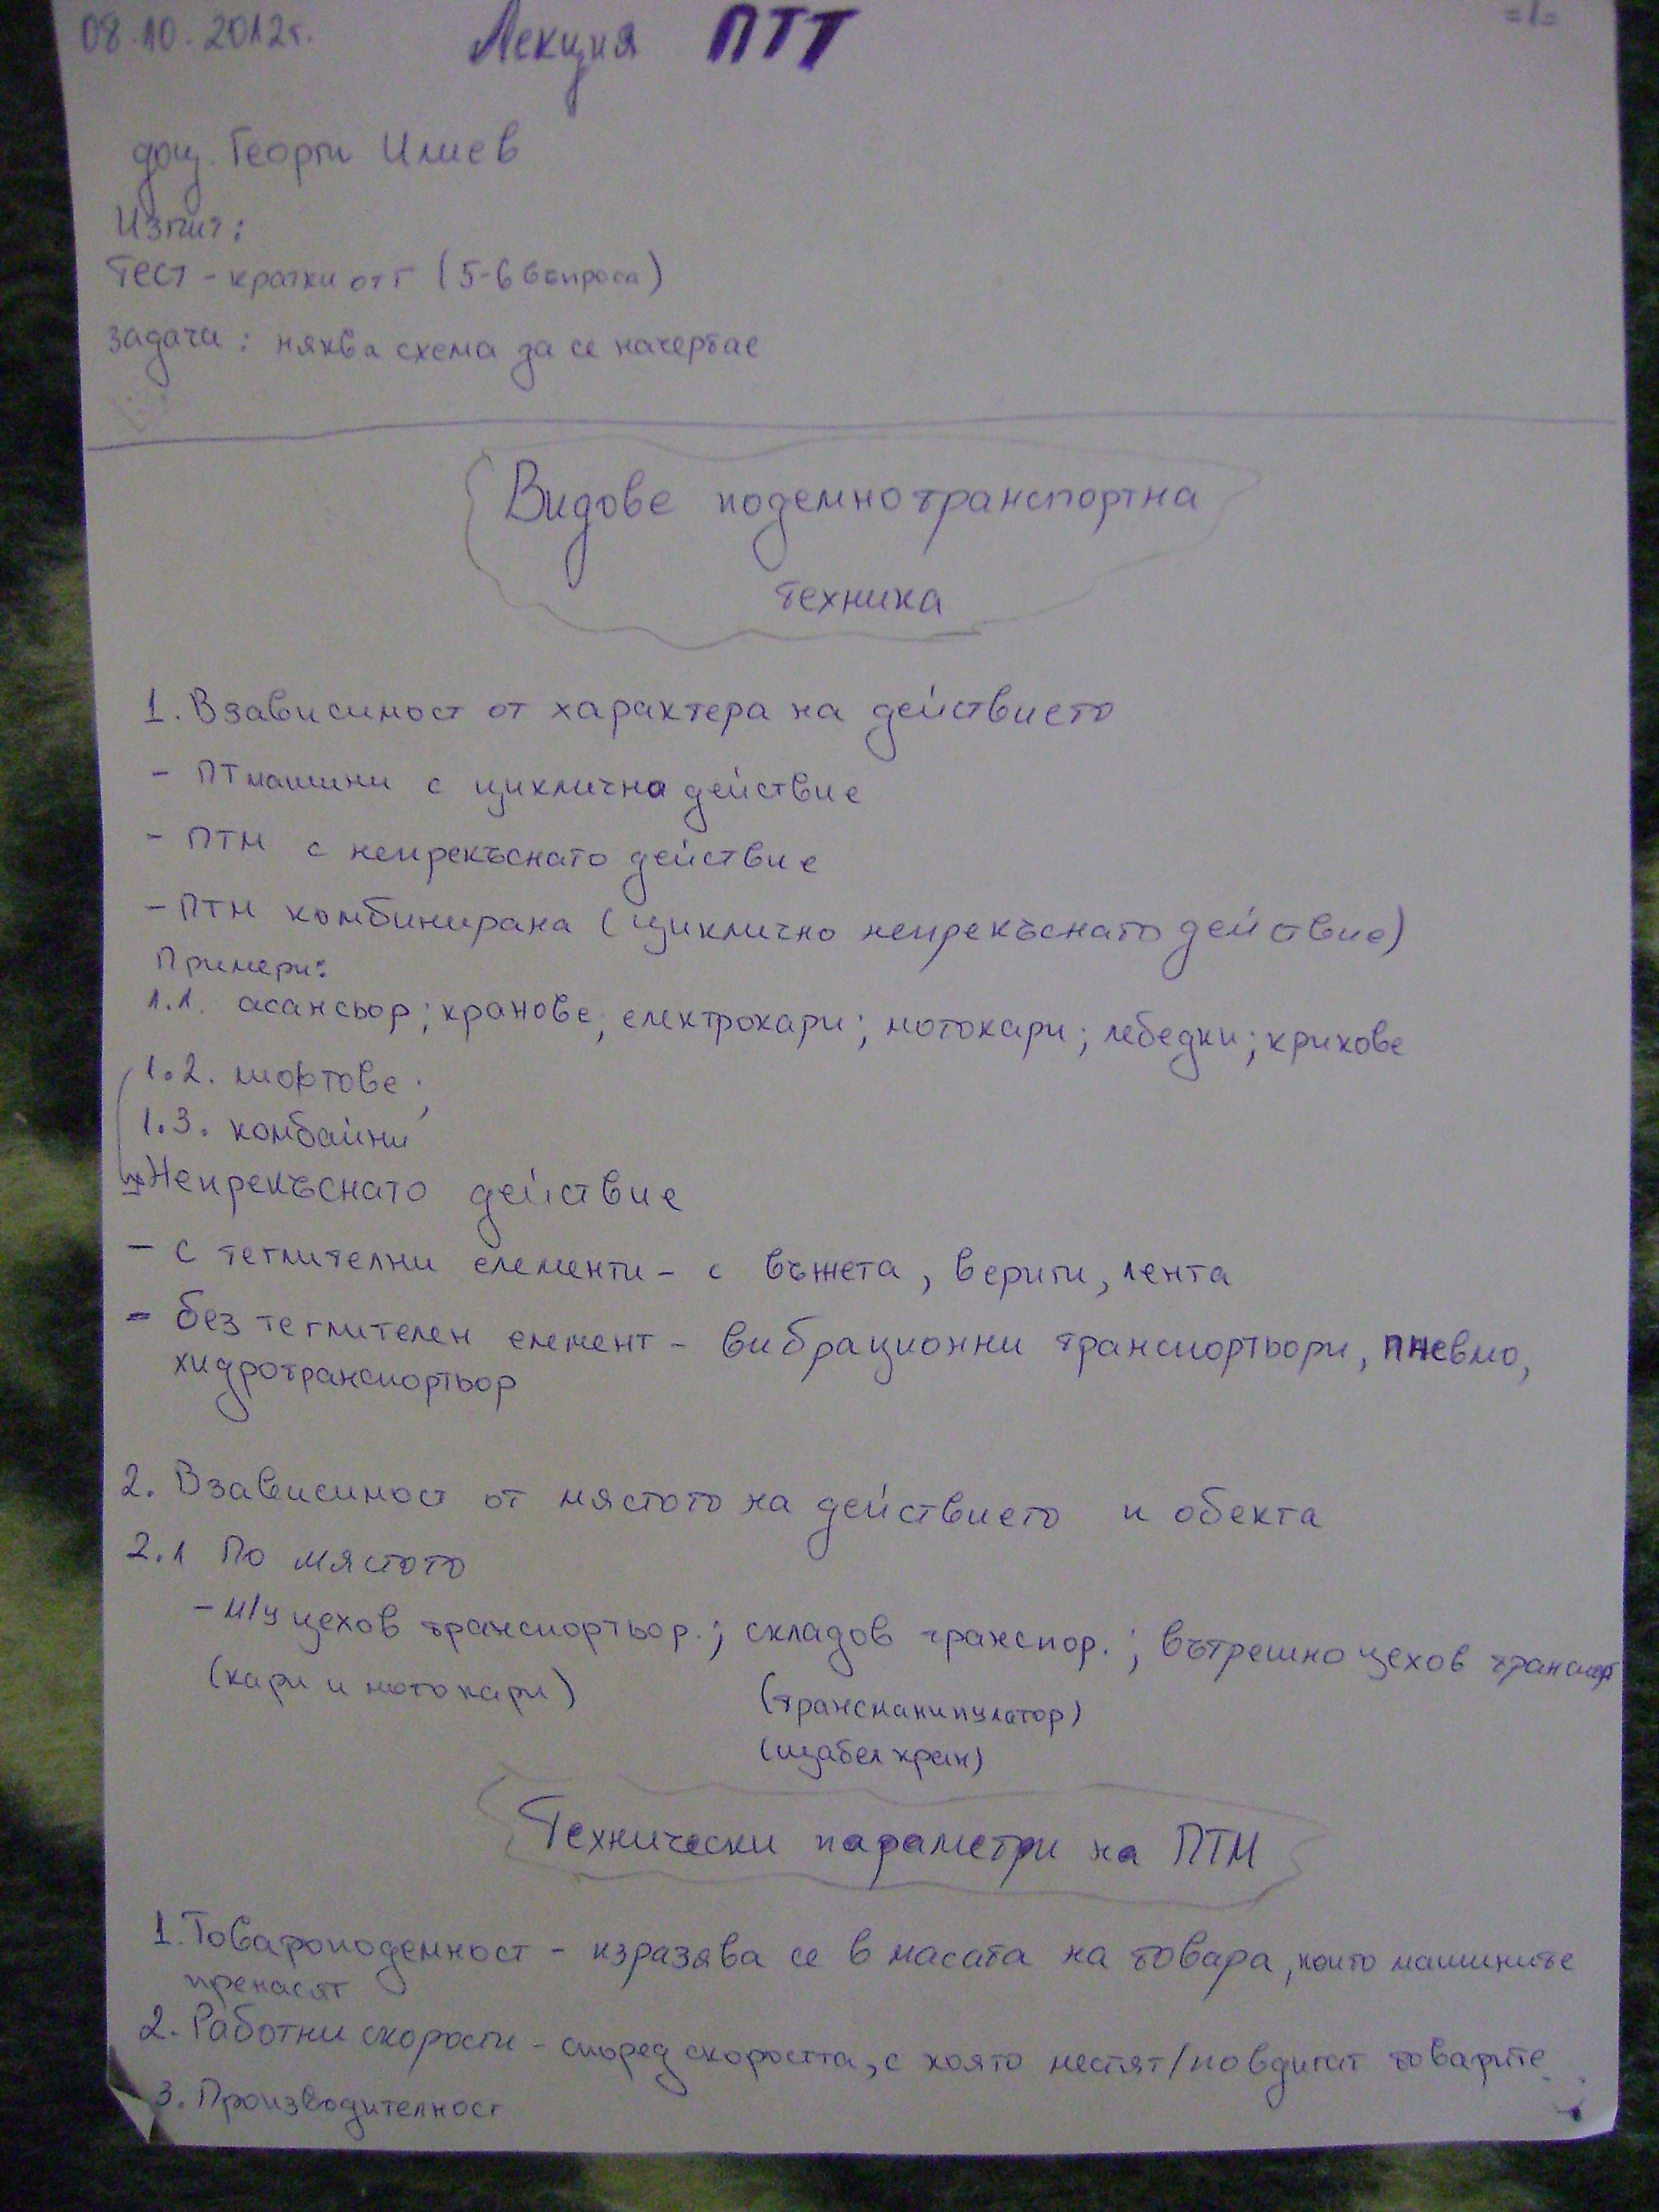 08.10.2012г. Лекция ПТТ =1=
доц. Георги Илиев
Изпит:
Тест - кратки отг (5-6 въпроса)
задачи: няква схема да се начертае
Видове подемнотранспортна
техника
1. Взависимост от характера на действието
- ПТмашини с циклично действие
- ПТМ с непрекъснато действие
- ПТМ комбинирана (циклично непрекъснато действие)
Примери:
1.1. асансьор; кранове; електрокари; мотокари; лебедки; крикове
1.2. шортове;
1.3. комбайни
Непрекъснато действие
- с теглителни елементи - с въжета, вериги, лента
- без теглителен елемент - вибрационни транспортьори, пневмо,
хидротранспортьор
2. Взависимост от мястото на действието и обекта
2.1 По мястото
- м/у цехов транспортьор.; складов транспор.; вътрешно цехов транспорт
(кари и мотокари) (трансманипулатор)
(щабел кран)
Технически параметри на ПТМ
1. Товароподемност - изразява се в масата на товара, които машините
пренасят
2. Работни скорости - според скоростта, с която местят/повдигат товарите
3. Производителност